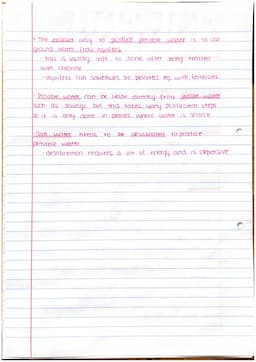 · The easiest way to produce potable water is to use
ground water from aquifers
- this is usually safe to drink after being treated
with chlorine
- aquifers can sometimes be polluted eg with fertilisers
· Potable water can be made directly from waste water
such as sewage but this takes many purification steps
so it is only done in places where water is scarce.
· Salt water needs to be desalinated to produce
potable water
- desalination requires a lot of energy and is expensive